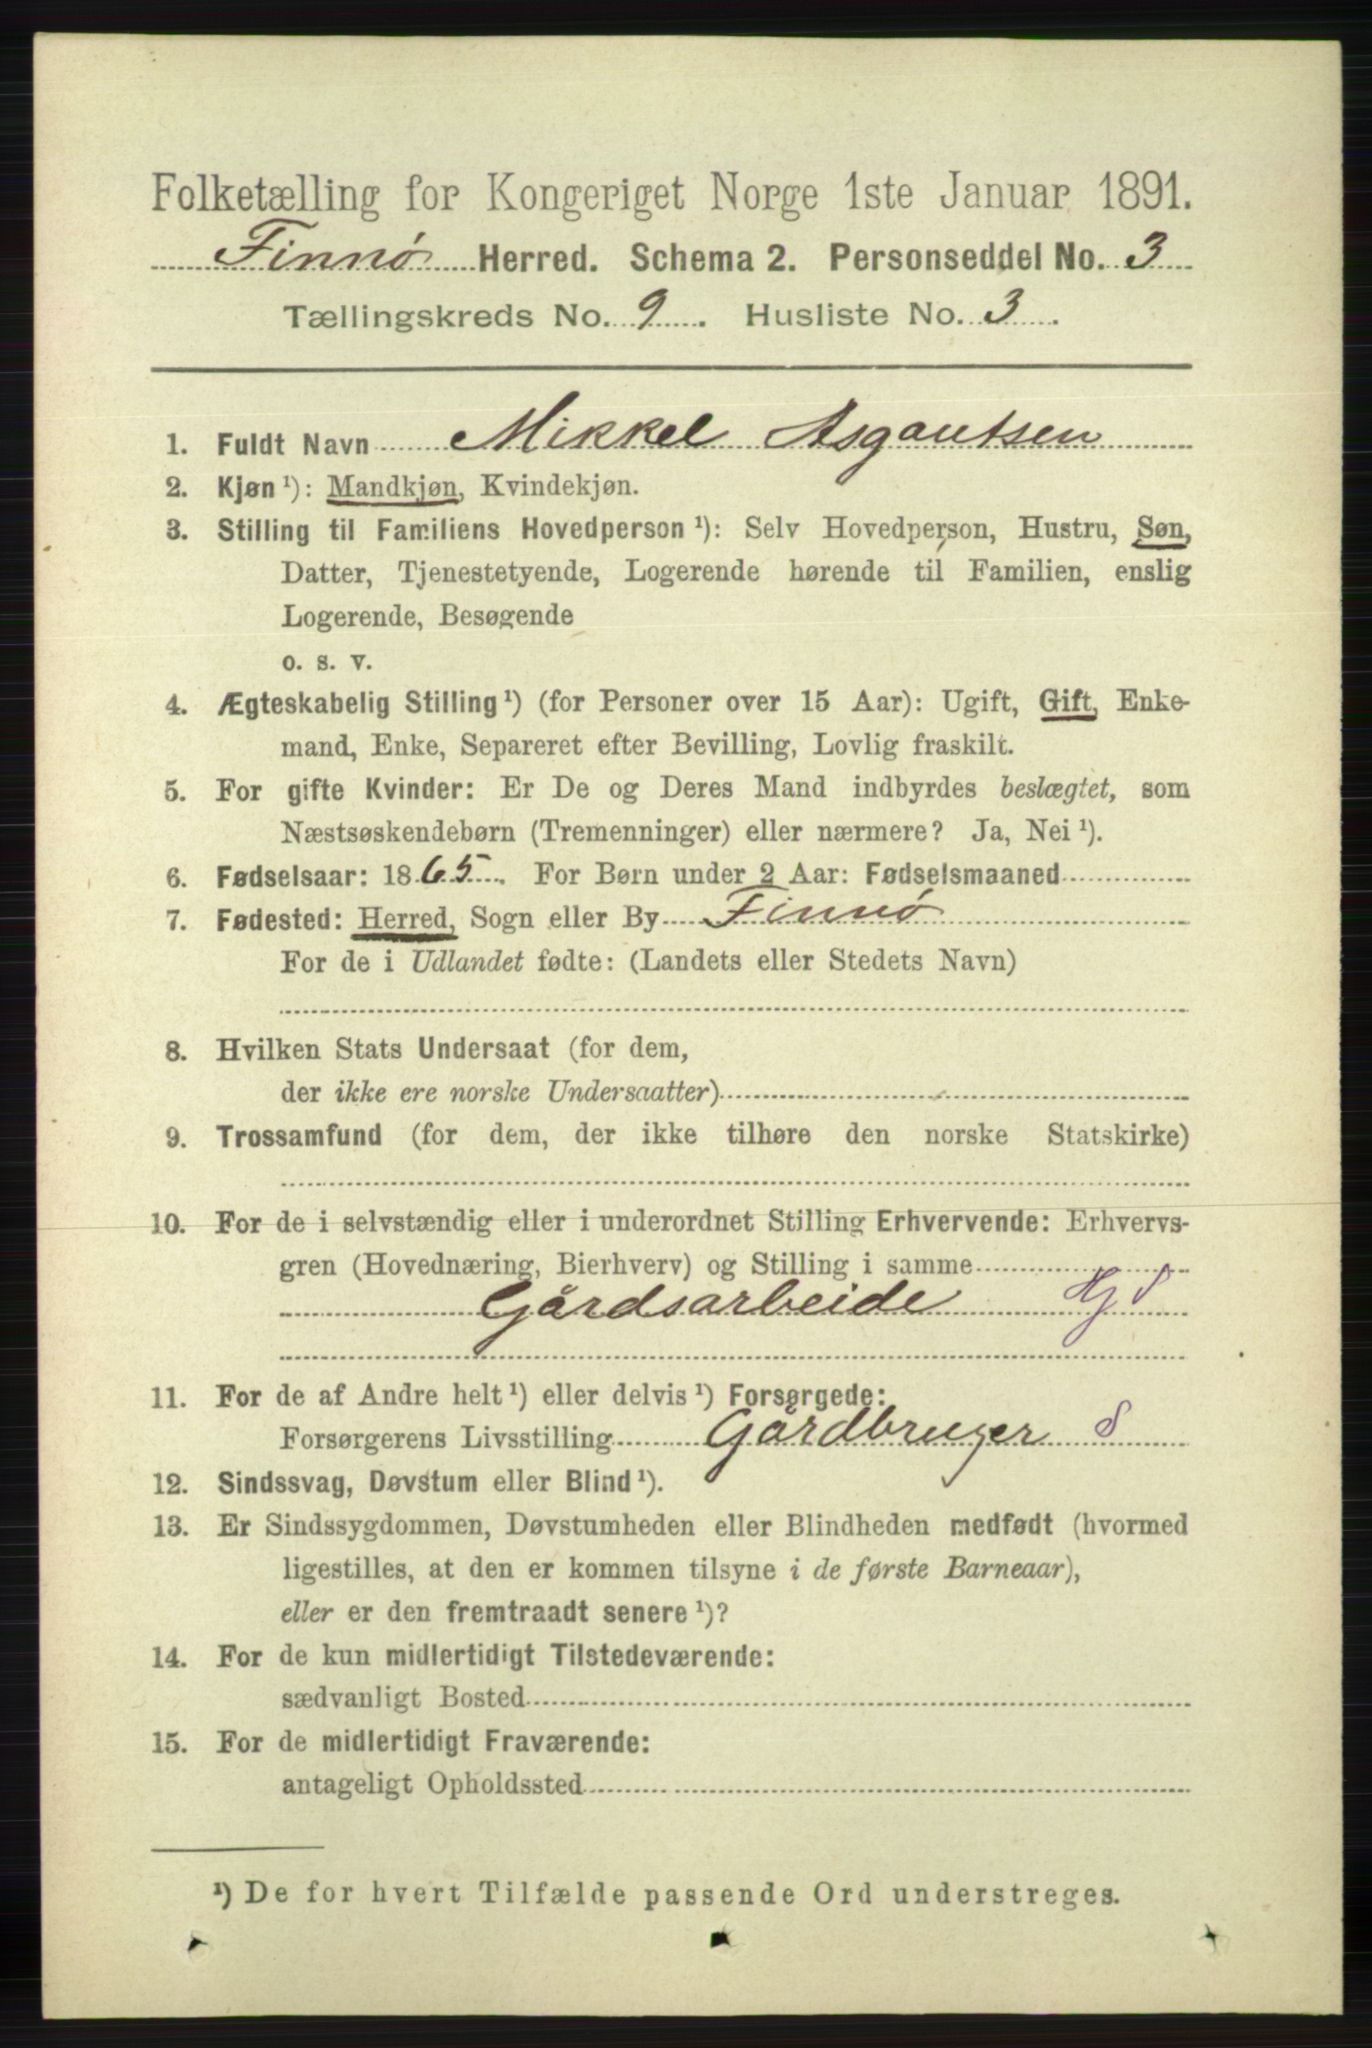 Folketælling for Kongeriget Norge 1ste Januar 1891.
Finnø Herred. Schema 2. Personseddel No. 3
Tællingskreds No. 9. Husliste No. 3.
1. Fuldt Navn Mikkel Asgautsen
2. Kjøn ¹): Mandkjøn, Kvindekjøn.
3. Stilling til Familiens Hovedperson ¹): Selv Hovedperson, Hustru, Søn,
Datter, Tjenestetyende, Logerende hørende til Familien, enslig
Logerende, Besøgende
o. s. v.
4. Ægteskabelig Stilling ¹) (for Personer over 15 Aar): Ugift, Gift, Enke-
mand, Enke, Separeret efter Bevilling, Lovlig fraskilt.
5. For gifte Kvinder: Er De og Deres Mand indbyrdes beslægtet, som
Næstsøskendebørn (Tremenninger) eller nærmere? Ja, Nei ¹).
6. Fødselsaar: 1865. For Børn under 2 Aar: Fødselsmaaned
7. Fødested: Herred, Sogn eller By Finnø
For de i Udlandet fødte: (Landets eller Stedets Navn)
8. Hvilken Stats Undersaat (for dem,
der ikke ere norske Undersaatter)
9. Trossamfund (for dem, der ikke tilhøre den norske Statskirke)
10. For de i selvstændig eller i underordnet Stilling Erhvervende: Erhvervs-
gren (Hovednæring, Bierhverv) og Stilling i samme
Gårdsarbeide
11. For de af Andre helt ¹) eller delvis ¹) Forsørgede:
Forsørgerens Livsstilling Gårdbruger
12. Sindssvag, Døvstum eller Blind ¹).
13. Er Sindssygdommen, Døvstumheden eller Blindheden medfødt (hvormed
ligestilles, at den er kommen tilsyne i de første Barneaar),
eller er den fremtraadt senere ¹)?
14. For de kun midlertidigt Tilstedeværende:
sædvanligt Bosted
15. For de midlertidigt Fraværende:
antageligt Opholdssted
¹) De for hvert Tilfælde passende Ord understreges.